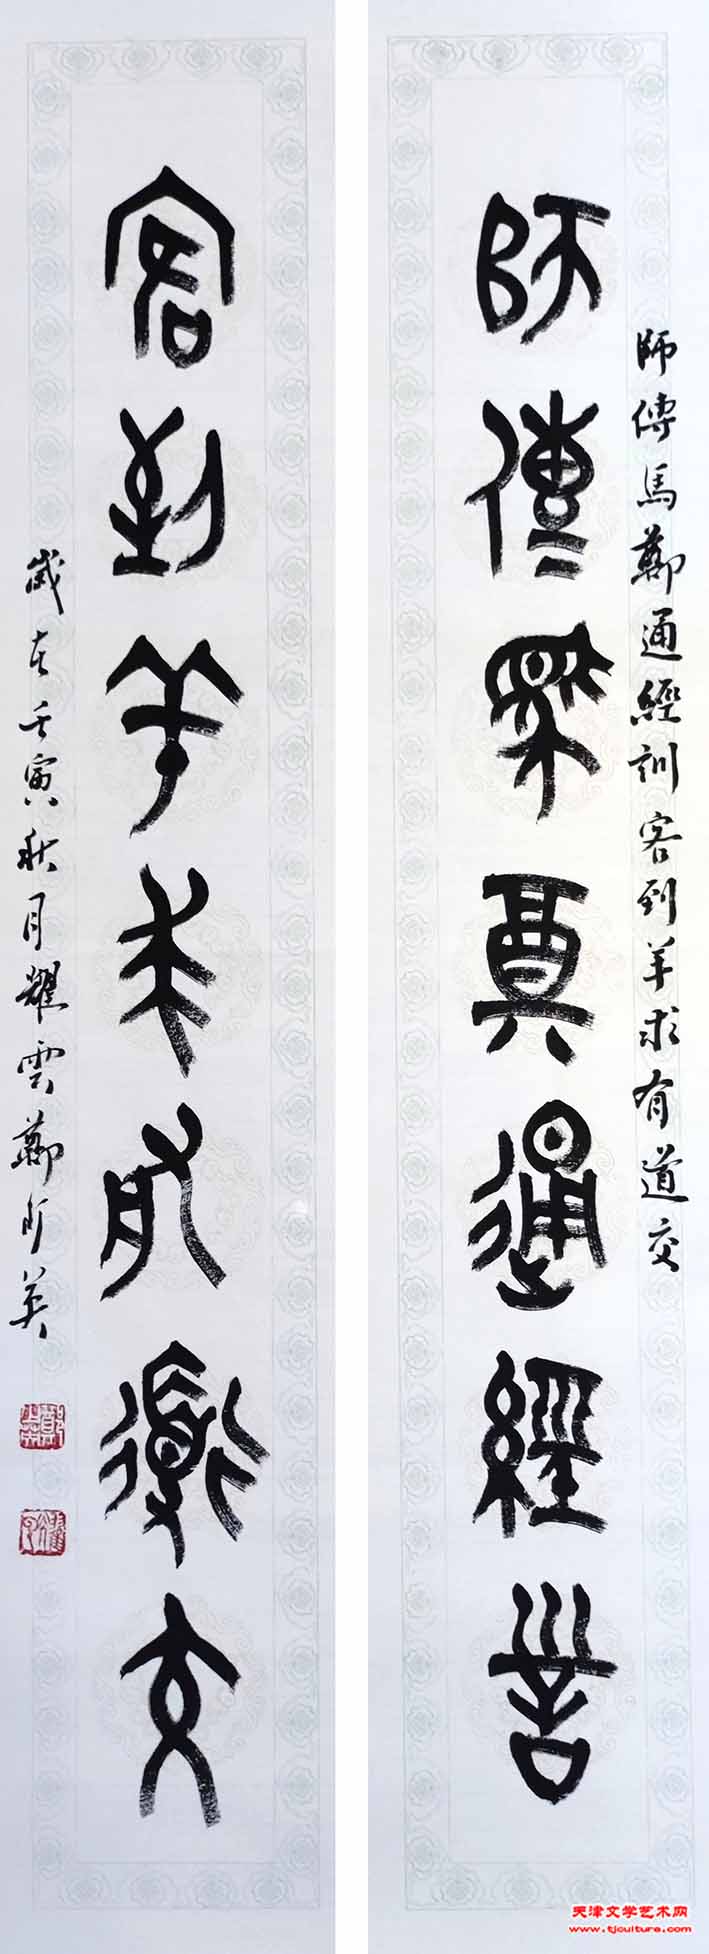 師傳馬鄭通經訓客到羊求有道交
師傳馬鄭通經訓
客到羊求有道交
歲在壬寅秋月耀雲鄭英
天津文学艺术网
www.tjculture.com